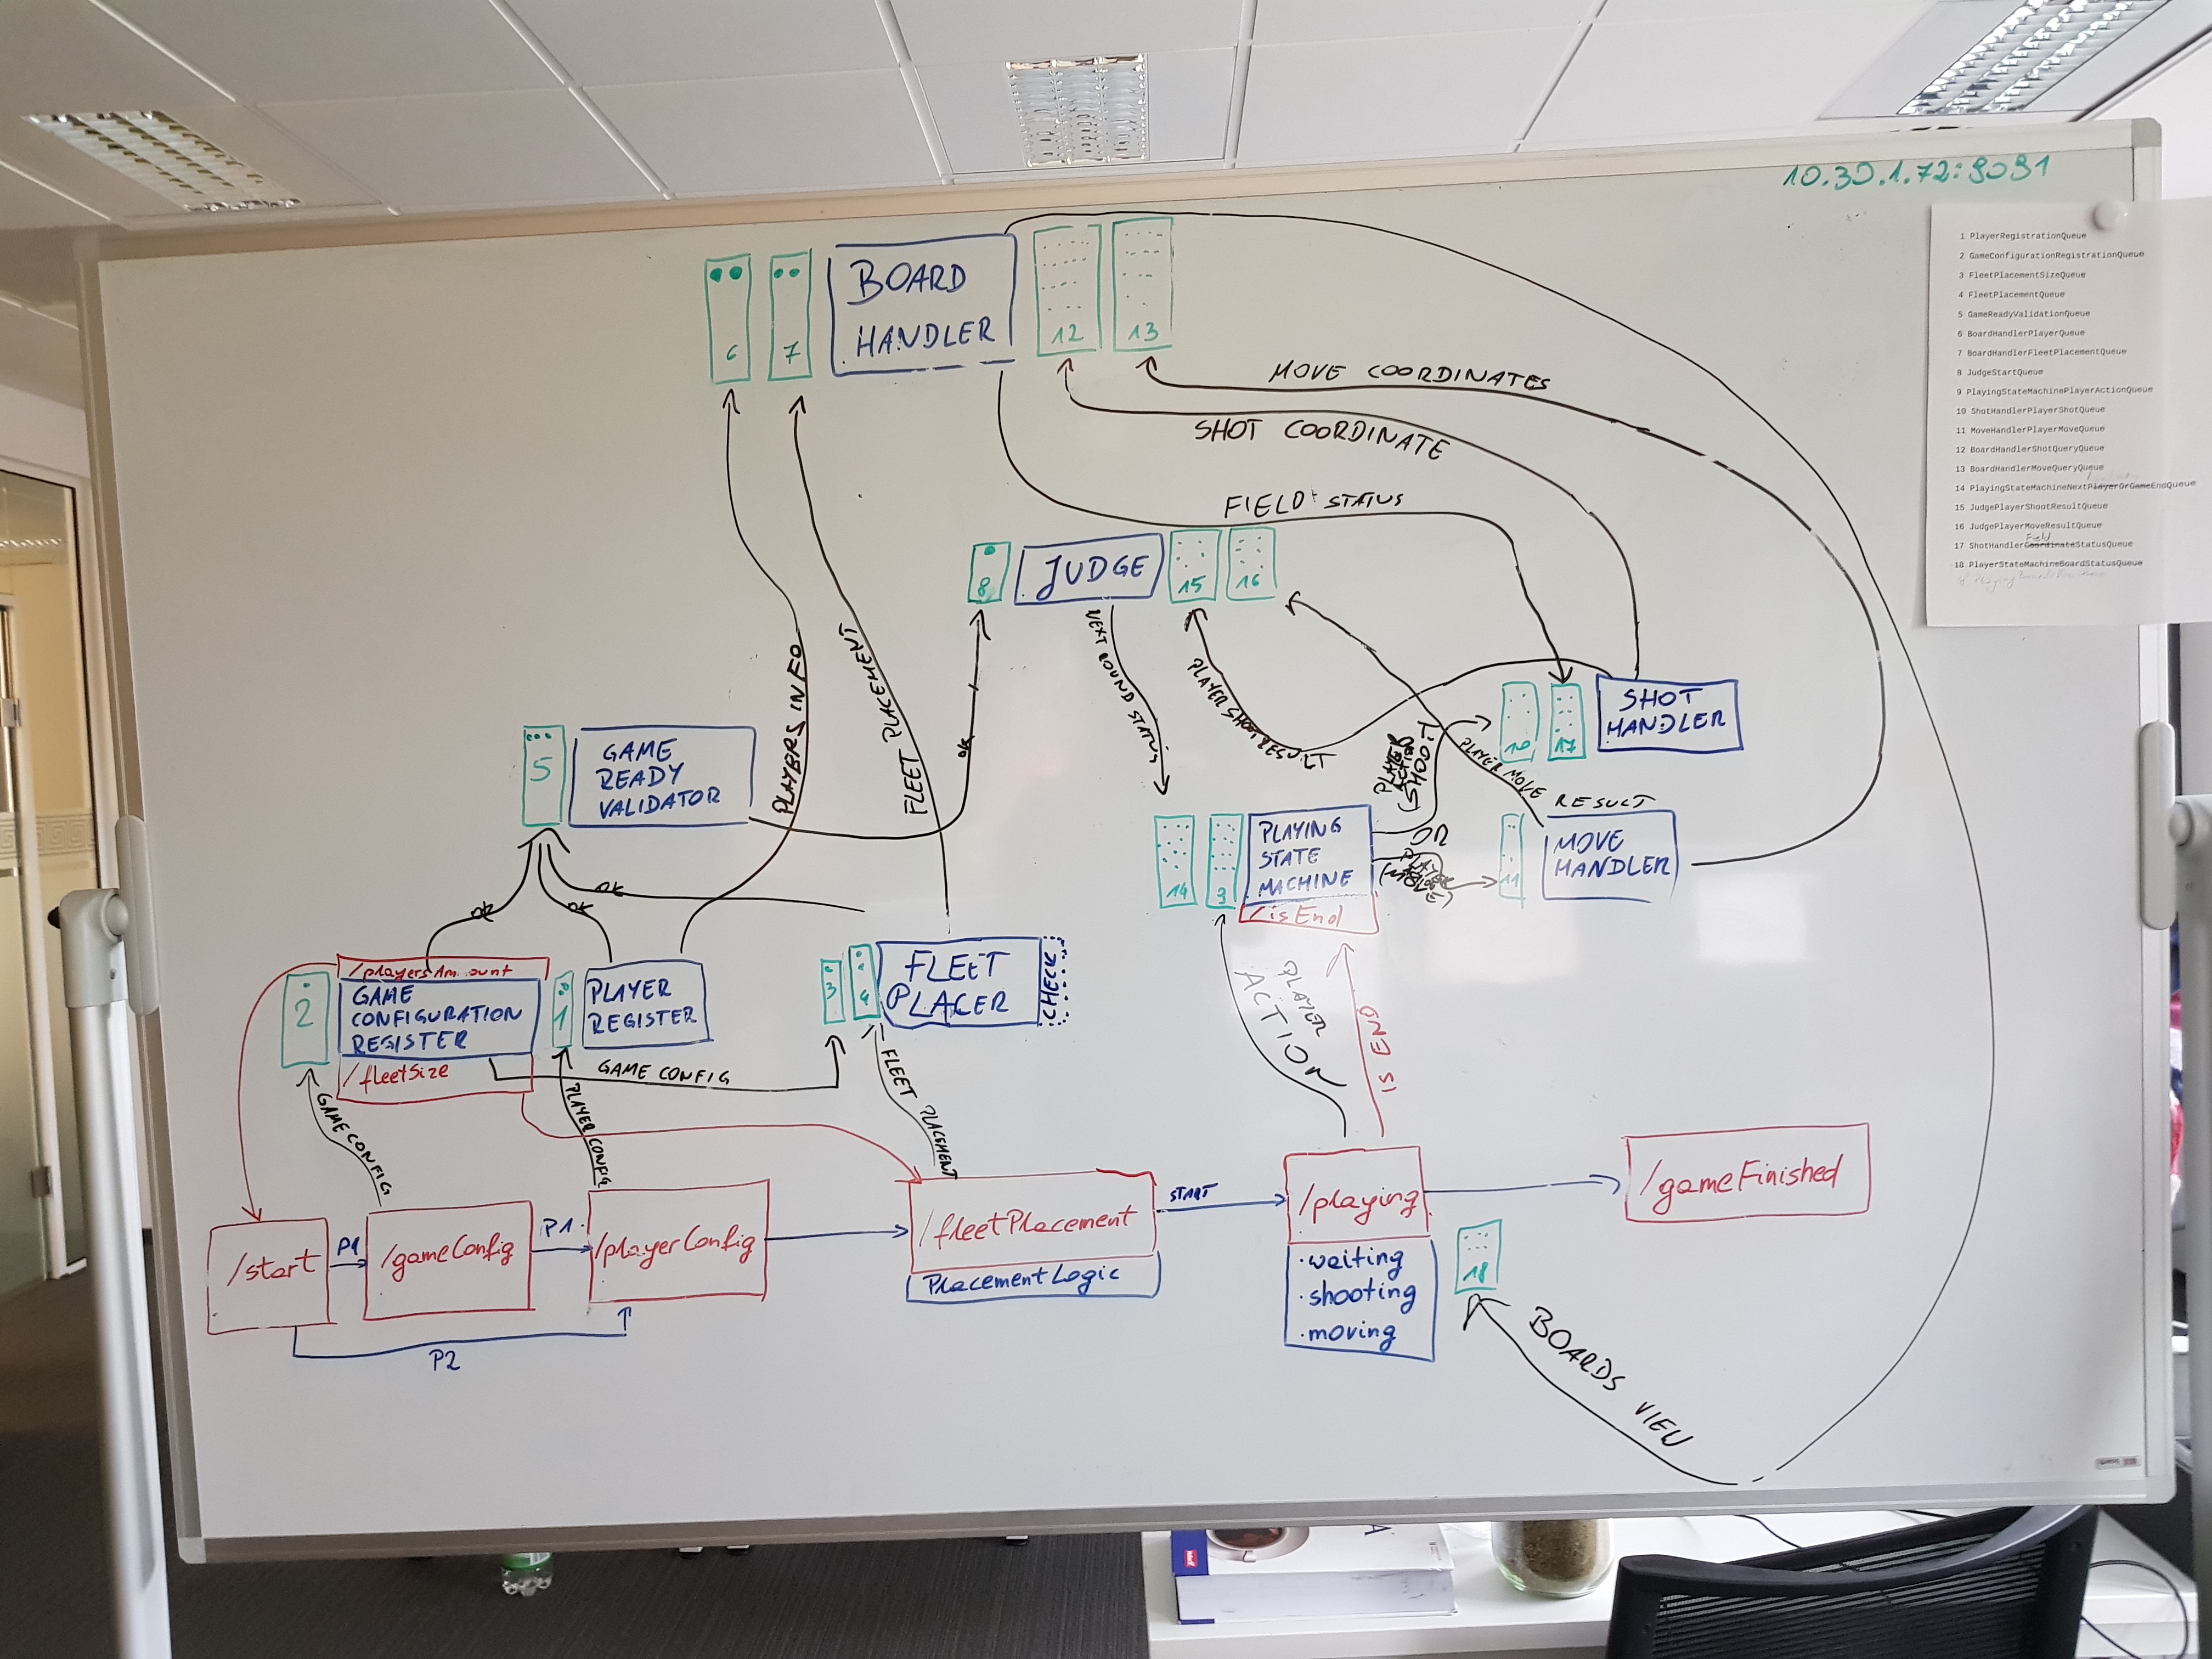 10.30.1.72:9091
1 PlayerRegistrationQueue
2 GameConfigurationRegistrationQueue
3 FleetPlacementSizeQueue
4 FleetPlacementQueue
5 GameReadyValidationQueue
6 BoardHandlerPlayerQueue
7 BoardHandlerFleetPlacementQueue
8 JudgeStartQueue
9 PlayingStateMachinePlayerActionQueue
10 ShotHandlerPlayerShotQueue
11 MoveHandlerPlayerMoveQueue
12 BoardHandlerShotQueryQueue
13 BoardHandlerMoveQueryQueue
14 PlayingStateMachineNextPlayerOrGameEndQueue
15 JudgePlayerShootResultQueue
16 JudgePlayerMoveResultQueue
Field
17 ShotHandlerCoordinateStatusQueue
18 PlayerStateMachineBoardStatusQueue
6
7
BOARD
HANDLER
12
13
MOVE COORDINATES
SHOT COORDINATE
FIELD STATUS
8
JUDGE
15
16
NEXT ROUND STATUS
PLAYER SHOT RESULT
PLAYERS INFO
FLEET PLACEMENT
OK
5
GAME
READY
VALIDATOR
10
17
SHOT
HANDLER
PLAYER
ACTION
(SHOOT)
OR
(MOVE)
PLAYER MOVE RESULT
14
9
PLAYING
STATE
MACHINE
/isEnd
11
MOVE
HANDLER
OK
OK
OK
/playersAmount
2
GAME
CONFIGURATION
REGISTER
/fleetSize
1
PLAYER
REGISTER
3
4
FLEET
PLACER
CHECK
GAME CONFIG
GAME CONFIG
PLAYER CONFIG
FLEET PLACEMENT
PLAYER
ACTION
IS END
/start
P1
/gameConfig
P1
/playerConfig
P2
/fleetPlacement
PlacementLogic
START
/playing
·waiting
·shooting
·moving
/gameFinished
18
BOARDS VIEW